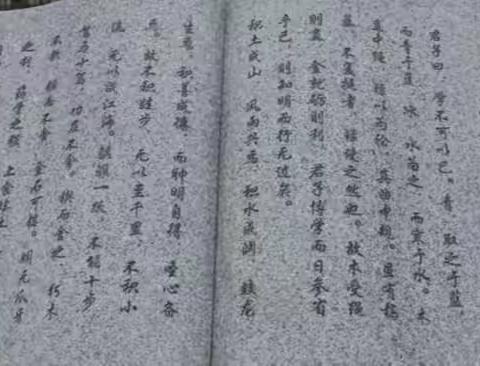 君子曰，学不可以已。青，取之于蓝
而青于蓝，冰，水为之，而寒于水。木
直中绳，輮以为轮，其曲中规。虽有槁
暴，不复挺者，輮使之然也。故木受绳
则直，金就砺则利，君子博学而日参省
乎己，则知明而行无过矣。
积土成山，风雨兴焉，积水成渊，蛟龙
生焉，积善成德，而神明自得，圣心备
焉。故不积跬步，无以至千里，不积小
流，无以成江海。骐骥一跃，不能十步
驽马十驾，功在不舍。锲而舍之，朽木
不折，锲而不舍，金石可镂。蚓无爪牙
之利，筋骨之强，上食埃土